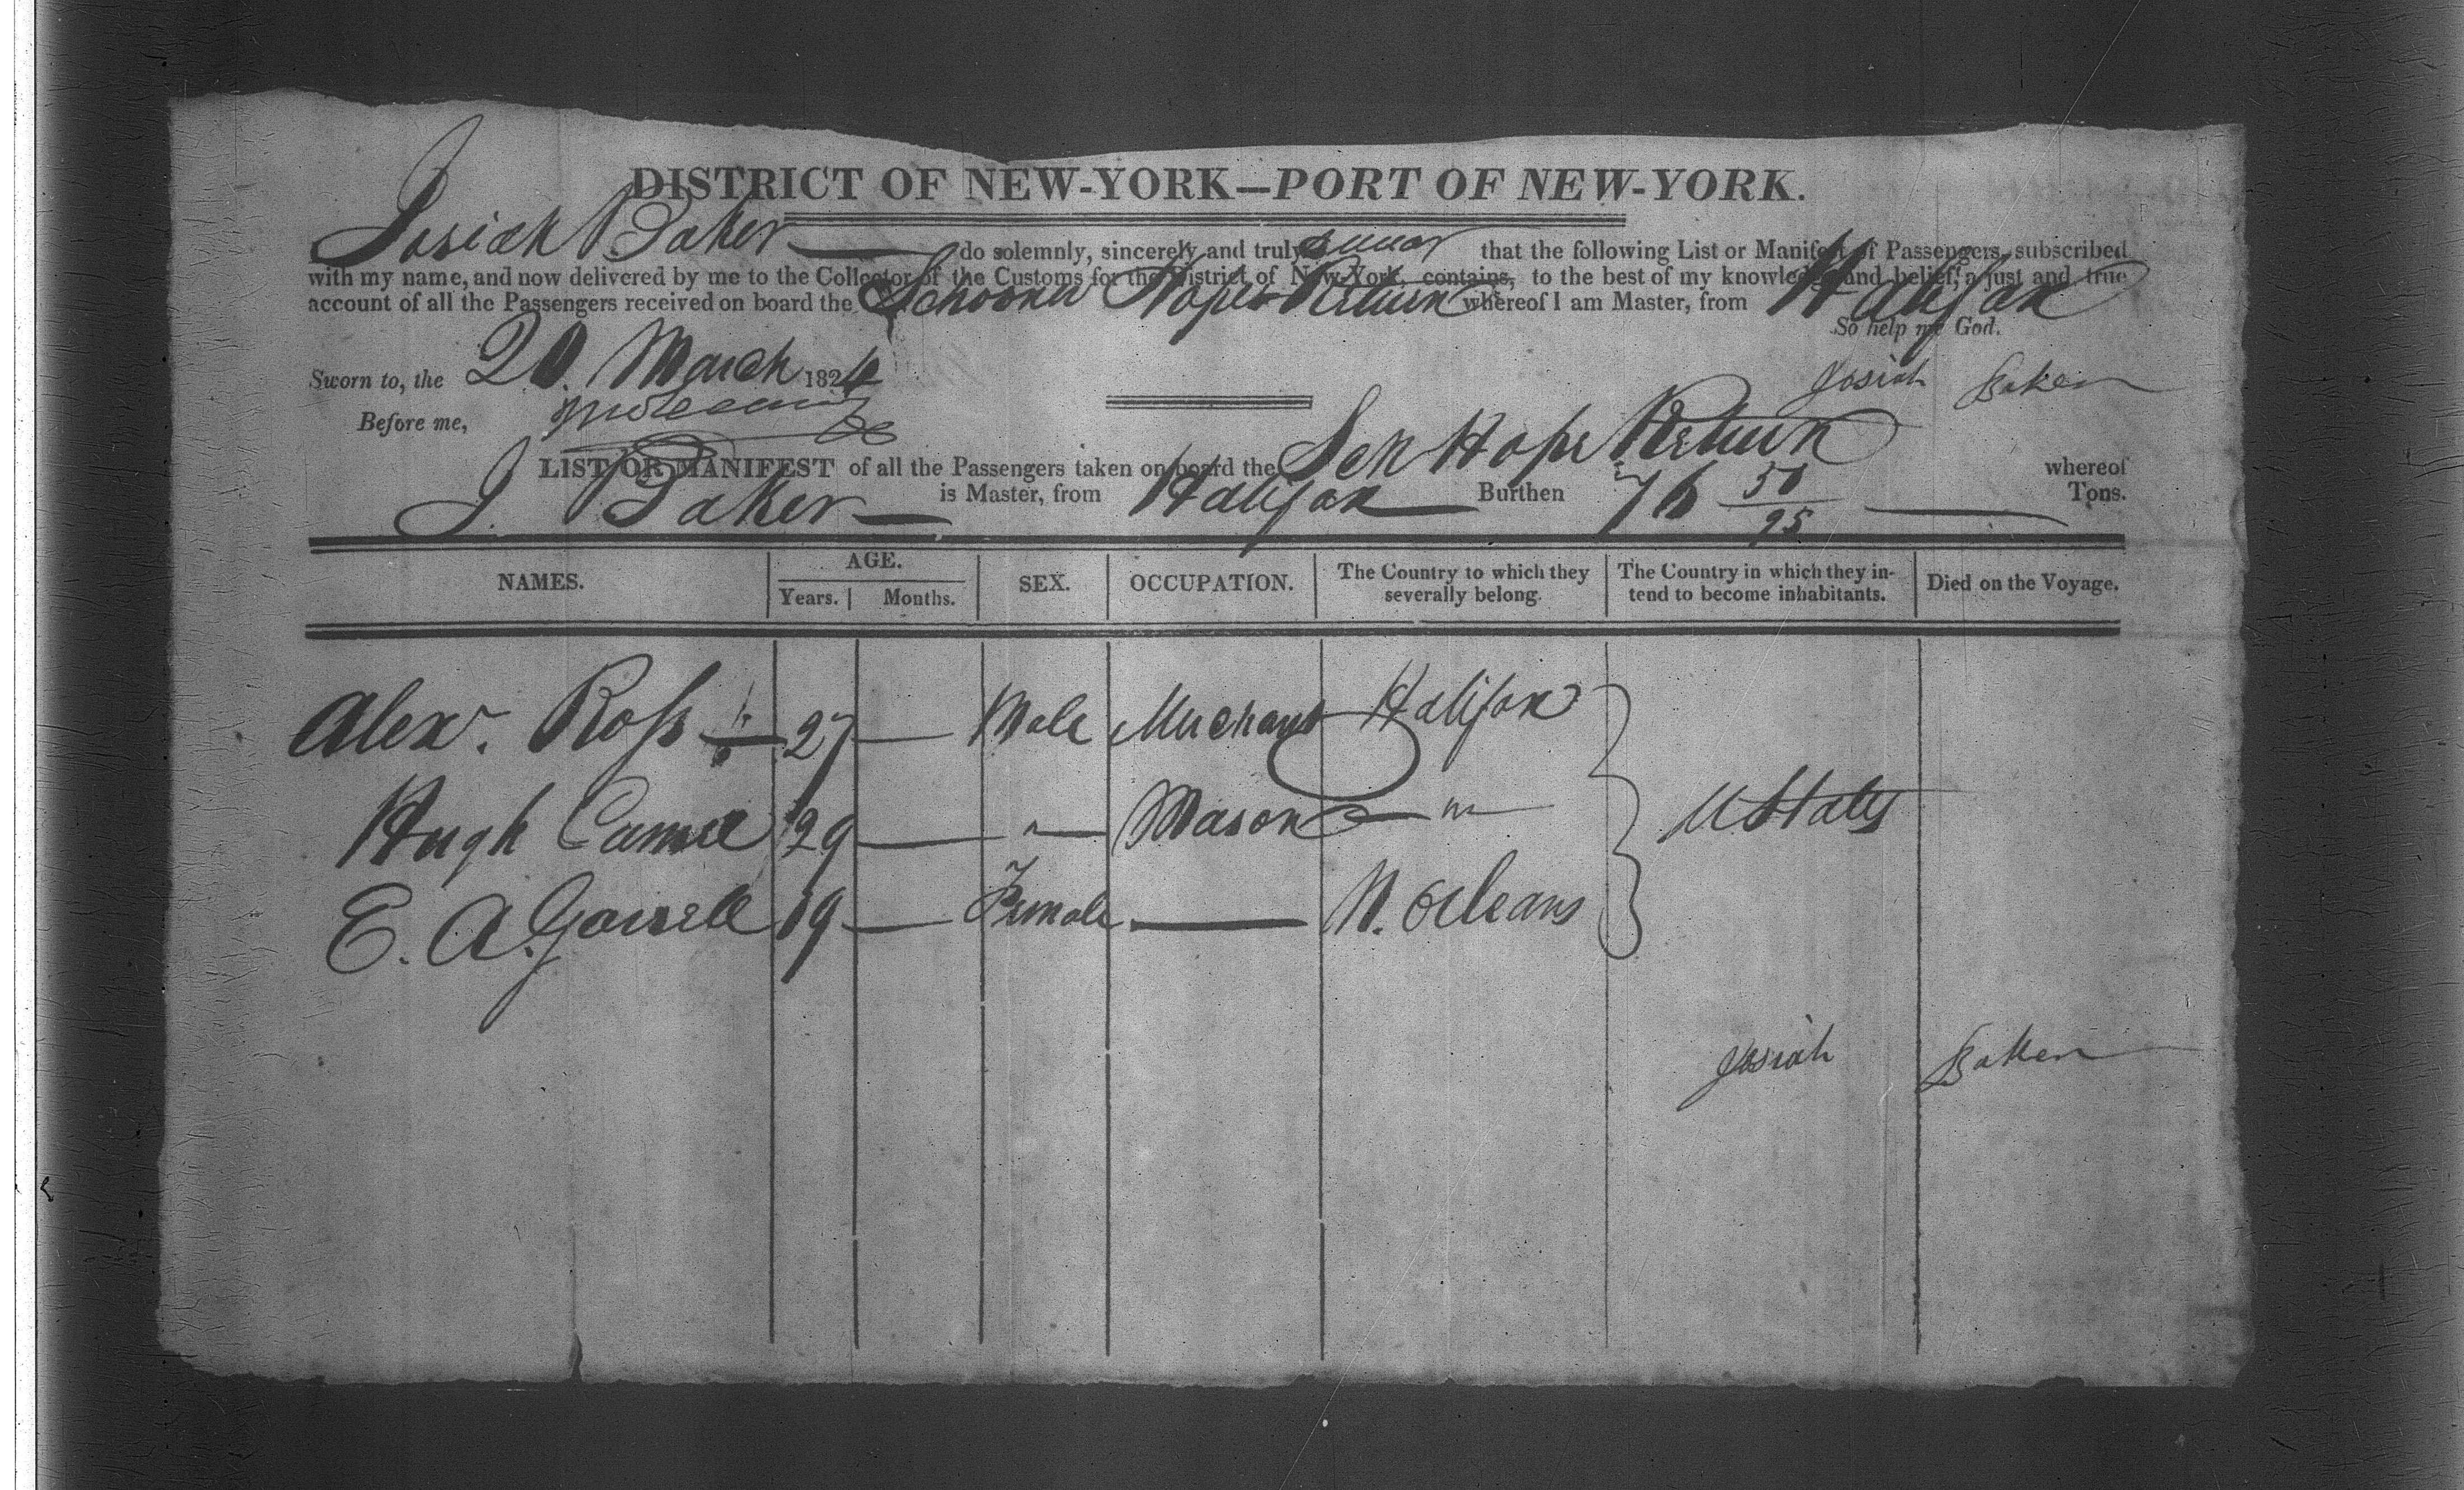 DISTRICT OF NEW-YORK—PORT OF NEW-YORK.
Josiah Baker — do solemnly, sincerely and truly swear that the following List or Manifest of Passengers, subscribed
with my name, and now delivered by me to the Collector of the Customs for the District of New-York, contains, to the best of my knowledge and belief, a just and true
account of all the Passengers received on board the Schooner Hopes Return whereof I am Master, from Halifax
So help me God.
Sworn to, the 20. March 1824 Josiah Baker
Before me,
LIST OR MANIFEST of all the Passengers taken on board the Sch Hope Return whereof
J. Baker — is Master, from Halifax — Burthen 76 50/95 — Tons.
NAMES. AGE. SEX. OCCUPATION. The Country to which they severally belong. The Country in which they intend to become inhabitants. Died on the Voyage.
Years. Months.
Alexr. Ross 27 — Male Merchant Halifax
Hugh 29 — " — Mason — " — U States
E. A. 19 — Female — N. Orleans
Josiah Baker